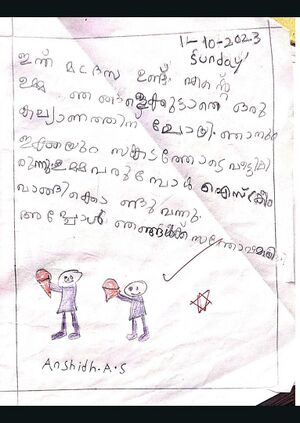 1L-10-2023
Sunday
ഇന്ന് മദ്രസ ഉണ്ട്. എന്റെ
ഉമ്മ ഞങ്ങളെക്കൂട്ടാതെ ഒരു
കല്യാണത്തിന് പോയി. ഞാനും
ഇക്കയും സങ്കടത്തോടെ വീട്ടിലി
രുന്നു ഉമ്മ വരുമ്പോൾ ഐസ്ക്രീം
വാങ്ങി കൊണ്ടു വന്നു.
അപ്പോൾ ഞങ്ങൾക്ക് സന്തോഷമായി.
Anshidh.A.S